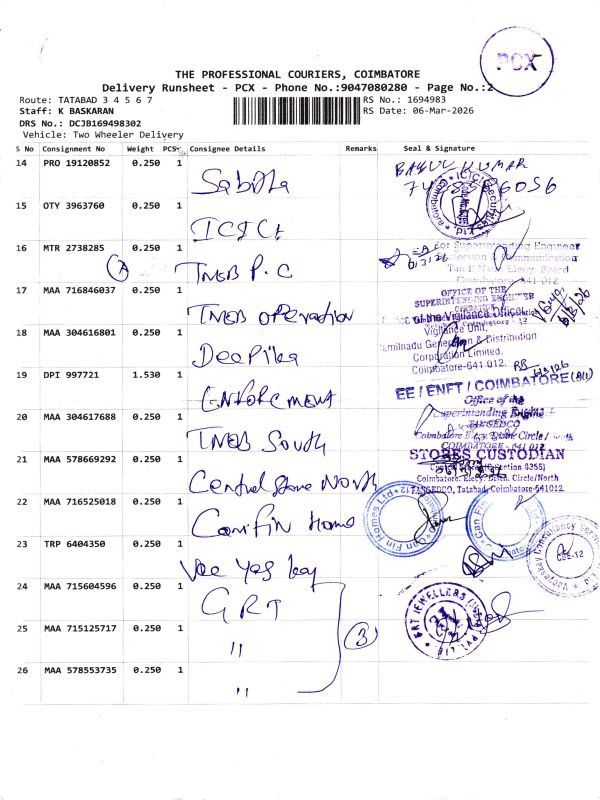 PCX
THE PROFESSIONAL COURIERS, COIMBATORE
Delivery Runsheet - PCX - Phone No.:9047080280 - Page No.:2
Route: TATABAD 3 4 5 6 7
RS No.: 1694983
Staff: K BASKARAN
RS Date: 06-Mar-2026
DRS No.: DCJB169498302
Vehicle: Two Wheeler Delivery
S No Consignment No Weight PCS Consignee Details Remarks Seal & Signature
14 PRO 19120852 0.250 1
15 OTY 3963760 0.250 1 ICICI
16 MTR 2738285 0.250 1 TNEB P.C
for Superintending Engineer
17 MAA 716846037 0.250 1 TNEB Operation
OFFICE OF THE
SUPERINTENDING ENGINEER
of the Vigilance Officer
Vigilance Unit,
18 MAA 304616801 0.250 1 Deepika
Tamilnadu Generation & Distribution
Corporation Limited.
Coimbatore-641 012.
19 DPI 997721 1.530 1 Enforcement
EE / ENFT / COIMBATORE
Office of the
Superintending Engineer
TANGEDCO
20 MAA 304617688 0.250 1 TNEB South
Coimbatore Elecy. Distn. Circle / South
COIMBATORE - 641 012
21 MAA 578669292 0.250 1 Central Store North
STORES CUSTODIAN
Coimbatore. Elecy. Distn. Circle/North
TANGEDCO, Tatabad, Coimbatore-641012.
22 MAA 716525018 0.250 1 Canfin Home
Can Fin Homes Ltd
23 TRP 6404350 0.250 1
24 MAA 715604596 0.250 1 GRT
GRT JEWELLERS
25 MAA 715125717 0.250 1 "
3
26 MAA 578553735 0.250 1 "